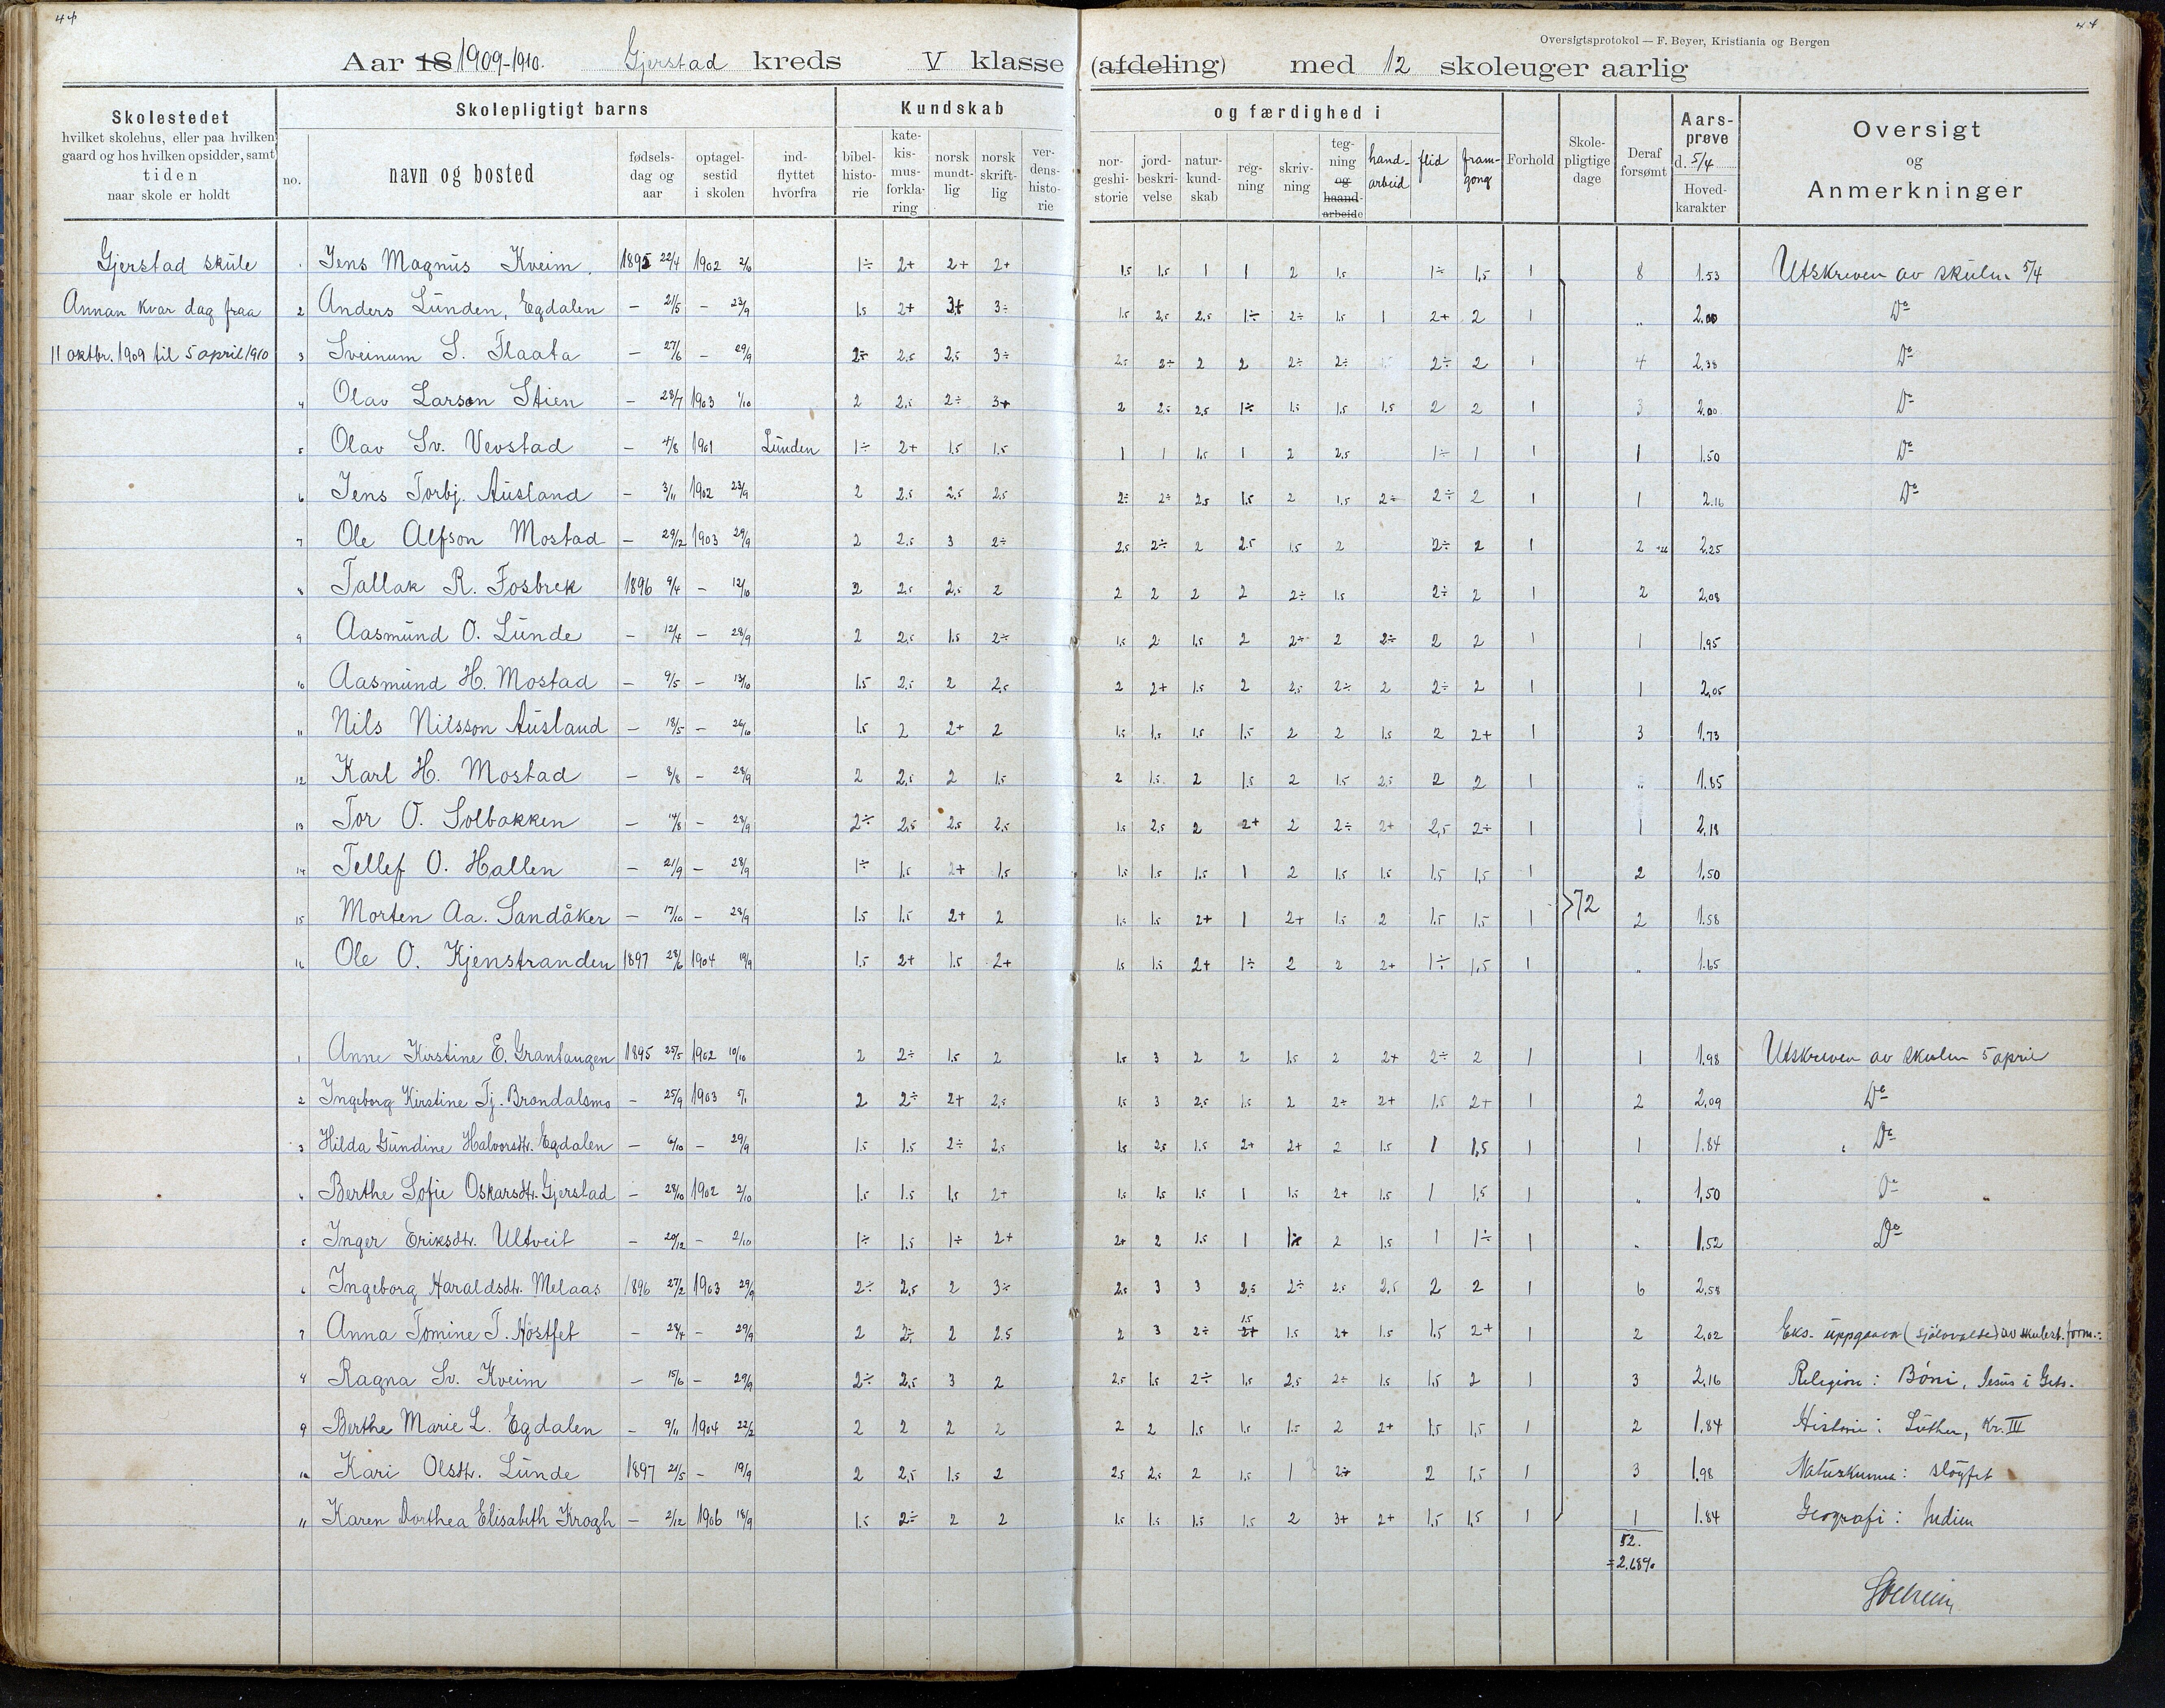 44
44
Oversigtsprotokol — F. Beyer, Kristiania og Bergen
Aar 18 1909-1910. Gjerstad kreds V klasse (afdeling) med 12 skoleuger aarlig
Skolestedet
hvilket skolehus, eller paa hvilken
gaard og hos hvilken opsidder, samt
tiden
naar skole er holdt
Skolepligtigt barns
no.
navn og bosted
fødsels-
dag og
aar
optagel-
sestid
i skolen
ind-
flyttet
hvorfra
Kundskab
bibel-
histo-
rie
kate-
kis-
mus-
forkla-
ring
norsk
mundt-
lig
norsk
skrift-
lig
ver-
dens-
histo-
rie
og færdighed i
nor-
geshi-
storie
jord-
beskri-
velse
natur-
kund-
skab
reg-
ning
skriv-
ning
teg-
ning
og
haand-
arbeide
hand-
arbeid
flid
fram-
gong
Forhold
Skole-
pligtige
dage
Deraf
forsømt
Aars-
prøve
d. 5/4
Hoved-
karakter
Oversigt
og
Anmerkninger
Gjerstad skule
Annan kvar dag fraa
11 oktbr. 1909 til 5 april 1910
Jens Magnus Kveim. 1895 22/4 1902 2/6 1÷ 2+ 2+ 2+ 1.5 1.5 1 1 2 1.5 1÷ 1,5 1 8 1.53 Utskreven av skulen 5/4
2 Anders Lunden, Egdalen — 21/5 — 23/9 1.5 2+ 3+ 3÷ 1.5 2.5 2.5 1÷ 2÷ 1.5 1 2+ 2 1 „ 2.00 Do
3 Sveinum S. Flaata — 27/6 — 29/9 2÷ 2.5 2.5 3÷ 2.5 2÷ 2 2 2÷ 2÷ 2÷ 2 1 4 2,38 Do
4 Olav Larson Stien — 28/7 1903 1/10 2 2.5 2÷ 3+ 2 2.5 2.5 1÷ 1.5 1.5 1.5 2 2 1 3 2.00 Do
5 Olav Sv. Vevstad — 4/8 1901 Lunden 1÷ 2+ 1.5 1.5 1 1 1.5 1 2 2.5 1÷ 1 1 1 1.50 Do
6 Jens Torbj. Ausland — 3/11 1902 23/9 2 2.5 2.5 2.5 2÷ 2÷ 2.5 1.5 2 1.5 2÷ 2÷ 2 1 1 2.16 Do
7 Ole Alfson Mostad — 29/12 1903 29/9 2 2.5 3 2÷ 2.5 2÷ 2 2.5 1.5 2 2÷ 2 1 2 2.25
8 Tallak R. Fosbrek 1896 9/4 — 12/10 2 2.5 2.5 2 2 2 2 2 2÷ 1.5 2÷ 2 1 2 2,08
9 Aasmund O. Lunde — 12/4 — 28/9 2 2.5 1.5 2÷ 1.5 2 1.5 2 2÷ 2 2÷ 2 2 1 1 1.95
10 Aasmund H. Mostad — 9/5 — 13/10 1.5 2.5 2 2.5 2 2+ 1.5 2 2.5 2÷ 2 2÷ 2 1 1 2,05
11 Nils Nilsson Ausland — 18/5 — 26/10 1.5 2 2+ 2 1.5 1.5 1.5 1.5 2 2 1.5 2 2+ 1 3 1.73
12 Karl H. Mostad — 8/8 — 28/9 2 2.5 2 1.5 2 1.5 2 1.5 2 1.5 2.5 2 2 1 „ 1.85
13 Tor O. Solbakken — 14/8 — 28/9 2÷ 2.5 2.5 2.5 1.5 2.5 2 2+ 2 2÷ 2+ 2,5 2+ 1 1 2,18
14 Tellef O. Hallen — 21/9 — 28/9 1÷ 1.5 2+ 1.5 1.5 1.5 1.5 1 2 1.5 1.5 1.5 1,5 1 2 1,50
15 Morten Aa. Sandåker — 17/10 — 28/9 1.5 1.5 2+ 2 1.5 1.5 2+ 1 2+ 1.5 2 1.5 1.5 1 72 2 1.58
16 Ole O. Kjenstranden 1897 28/6 1904 19/9 1.5 2+ 1.5 2+ 1.5 1.5 2+ 1÷ 2 2 2+ 1÷ 1,5 1 „ 1.65
1 Anne Kirstine E. Grantaugen 1895 25/5 1902 10/10 2 2÷ 1.5 2 1.5 3 2 2 1.5 2 2+ 2÷ 2 1 1 1.98 Utskreven av skulen 5 april
2 Ingeborg Kirstine Tj. Brøndalsmo — 25/9 1903 5/1 2 2÷ 2+ 2.5 1.5 3 2.5 1.5 2 2÷ 2+ 1.5 2+ 1 2 2,09 Do
3 Hilda Gundine Halvorsdtr. Egdalen — 6/10 — 29/9 1.5 1.5 2÷ 2.5 1.5 2.5 1.5 2+ 2+ 2 1.5 1 1,5 1 1 1.84 Do
4 Berthe Sofie Oskarsdtr. Gjerstad — 28/10 1902 2/10 1.5 1.5 1.5 2+ 1.5 1.5 1.5 1 1.5 2+ 1.5 1 1.5 1 „ 1,50 Do
5 Inger Eriksdtr. Ultveit — 20/12 — 2/10 1÷ 1.5 1÷ 2+ 2+ 2 1.5 1 2 1.5 1 1÷ 1 „ 1,52 Do
6 Ingeborg Haraldsdtr. Melaas 1896 27/2 1903 29/9 2÷ 2,5 2 3÷ 2.5 3 3 2.5 2÷ 2.5 2,5 2 2 1 6 2,58
7 Anna Tomine T. Høstfet — 28/4 — 29/9 2 2÷ 2 2.5 2 3 2÷ 1.5 2+ 1.5 2+ 1.5 1.5 2+ 1 2 2,02 Eks. uppgaava (sjølvvalde) av skulest. form.:
8 Ragna Sv. Kveim — 15/6 — 29/9 2÷ 2.5 3 2 2.5 1.5 2÷ 1.5 2.5 2÷ 1.5 1.5 2 1 3 2,16 Religion: Bøni, Jesus i Gets.
9 Berthe Marie L. Egdalen — 9/11 1904 22/2 2 2 2 2 2 2 1.5 1.5 1.5 2 2+ 1.5 1,5 1 2 1.84 Historie: Luther, Kr. III
10 Kari Olsdtr. Lunde 1897 21/5 — 19/9 2 2,5 1.5 2 2.5 2.5 2 1.5 1 2÷ 2 1,5 1 3 1,98 Naturkunna: sløyfet
11 Karen Dorthea Elisabeth Krogh — 2/12 1906 18/9 1.5 2÷ 2 2 1.5 1.5 1.5 1.5 2 3+ 2+ 1.5 1,5 1 1 1.84 Geografi: Indien
52.
=2.68%